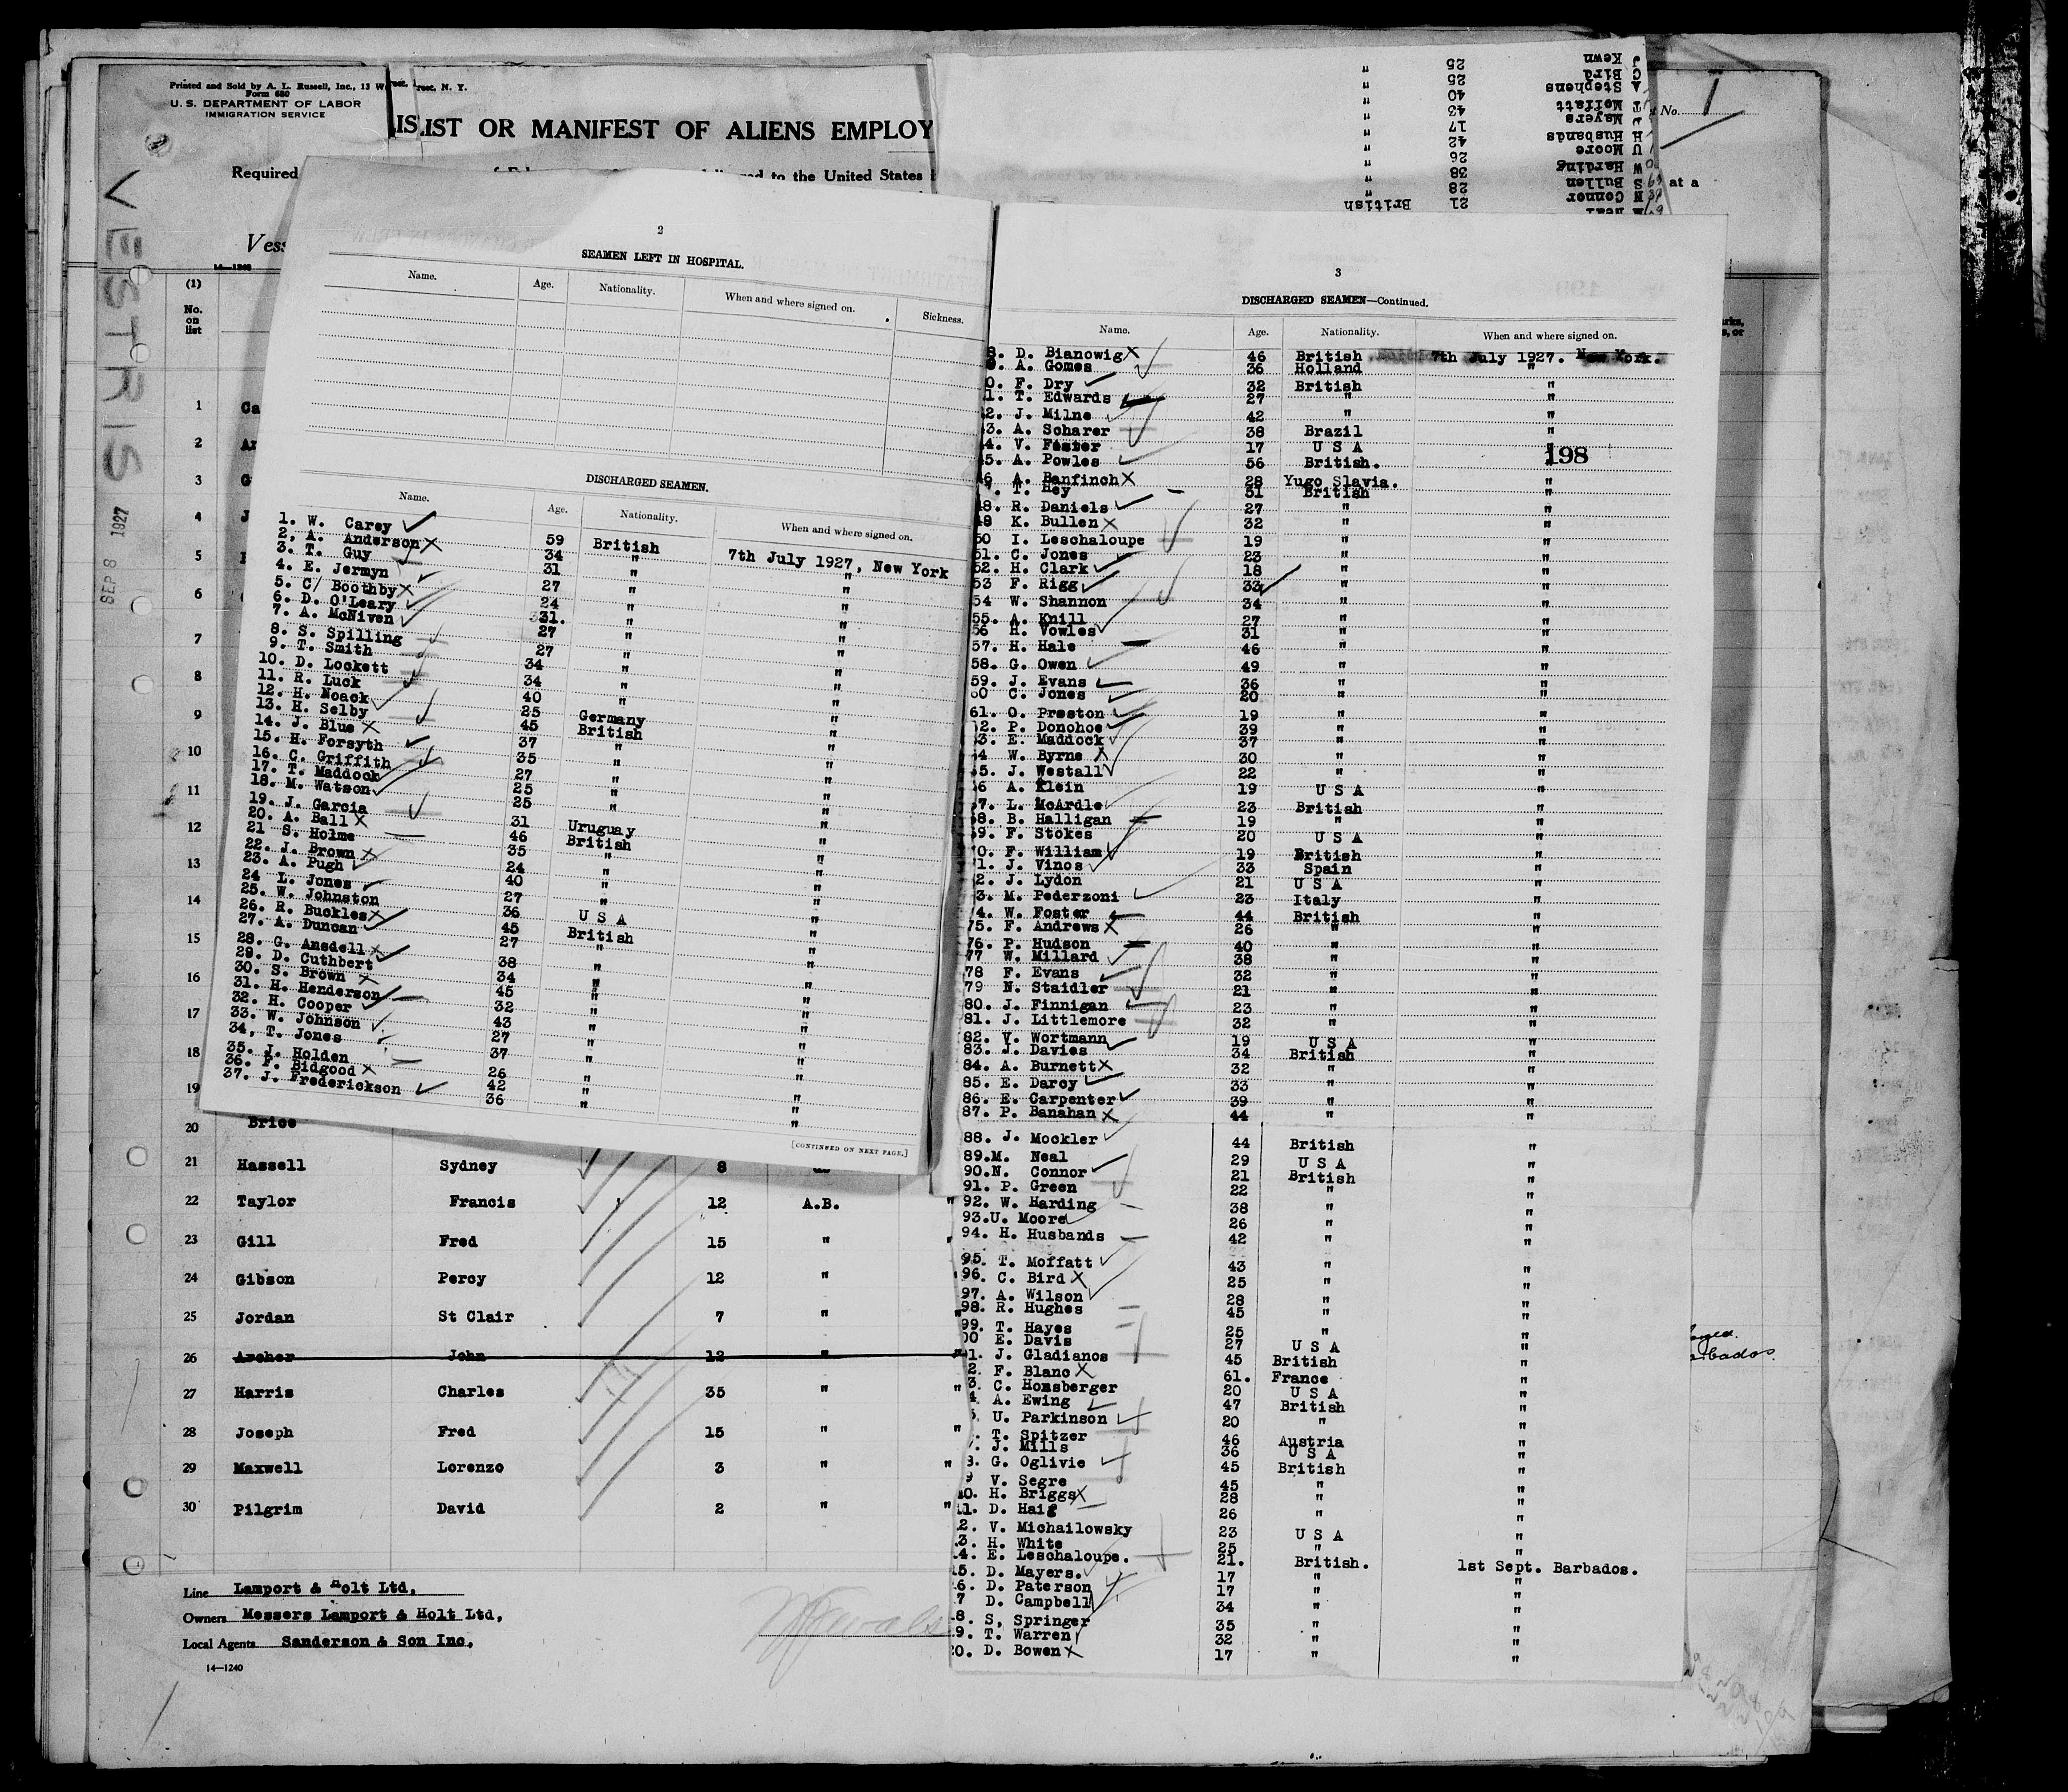 Printed and Sold by A. L. Russell, Inc., 13 W
rest, N. Y.
Form 680
U. S. DEPARTMENT OF LABOR
IMMIGRATION SERVICE
LIST OR MANIFEST OF ALIENS EMPLOY
Required
to the United States
at a
No. 1
Vess
14—1240
VESTRIS
SEP 8 1927
(1)
No. on list
2
SEAMEN LEFT IN HOSPITAL.
Name. Age. Nationality. When and where signed on. Sickness.
DISCHARGED SEAMEN.
Name. Age. Nationality. When and where signed on.
1. W. Carey 59 British 7th July 1927, New York
2, A. Anderson 34 " "
3. T. Guy 31 " "
4. E. Jermyn 27 " "
5. C/ Boothby 24 " "
6. D. O'Leary 31. " "
7. A. McNiven 27 " "
8. S. Spilling 27 " "
9. T. Smith 34 " "
10. D. Lockett 34 " "
11. R. Luck 40 " "
12. H. Noack 25 Germany "
13. H. Selby 45 British "
14. J. Blue 37 " "
15. H. Forsyth 35 " "
16. C. Griffith 27 " "
17. T. Maddock 25 " "
18. M. Watson 25 " "
19. J. Garcia 31 Uruguay "
20. A. Ball 46 British "
21 S. Holme 35 " "
22. J. Brown 24 " "
23. A. Pugh 40 " "
24 L. Jones 27 " "
25. W. Johnston 36 U S A "
26. R. Buckles 45 British "
27. A. Duncan 27 " "
28. G. Ansdell 38 " "
29. D. Cuthbert 34 " "
30. S. Brown 45 " "
31. H. Henderson 32 " "
32. H. Cooper 43 " "
33. W. Johnson 27 " "
34, T. Jones 37 " "
35. J. Holden 26 " "
36. F. Bidgood 42 " "
37. J. Frederickson 36 " "
[CONTINUED ON NEXT PAGE.]
J Kewn 25 "
C Bird 25 "
A Stephens 40 "
T Moffatt 43 "
J Mayers 17 "
H Husbands 42 "
U Moore 26 "
W Harding 38 "
S Bullen 28 "
N Connor 21 British
3
DISCHARGED SEAMEN—Continued.
Name. Age. Nationality. When and where signed on.
8. D. Bianowig 46 British 7th July 1927. New York.
9. A. Gomes 36 Holland "
0. F. Dry 32 British "
1. T. Edwards 27 " "
2. J. Milne 42 " "
3. A. Scharer 38 Brazil "
4. V. Foster 17 U S A "
198
5. A. Powles 56 British. "
46 A. Banfinch 28 Yugo Slavia. "
T. Hey 51 British "
48. R. Daniels 27 " "
49 K. Bullen 32 " "
50 I. Leschaloupe 19 " "
51. C. Jones 23 " "
52. H. Clark 18 " "
53 F. Rigg 33 " "
54 W. Shannon 34 " "
55. A. Knill 27 " "
56 H. Vowles 31 " "
57. H. Hale 46 " "
58. G. Owen 49 " "
59. J. Evans 36 " "
60 C. Jones 20 " "
61. O. Preston 19 " "
2. P. Donohoe 39 " "
3. E. Maddock 37 " "
4 W. Byrne 30 " "
5. J. Westall 22 " "
6 A. Klein 19 U S A "
7. L. McArdle 23 British "
8. B. Halligan 19 " "
9. F. Stokes 20 U S A "
0. F. William 19 British "
1. J. Vinos 33 Spain "
2. J. Lydon 21 U S A "
3. M. Pederzoni 23 Italy "
4. W. Foster 44 British "
75. F. Andrews 26 " "
76. P. Hudson 40 " "
77 W. Millard 38 " "
78 F. Evans 32 " "
79 N. Staidler 21 " "
80. J. Finnigan 23 " "
81. J. Littlemore 32 " "
82. V. Wortmann 19 U S A "
83. J. Davies 34 British "
84. A. Burnett 32 " "
85. E. Darcy 33 " "
86. E. Carpenter 39 " "
87. P. Banahan 44 " "
88. J. Mockler 44 British "
89.M. Neal 29 U S A "
90.N. Connor 21 British "
91. P. Green 22 " "
92. W. Harding 38 " "
93.U. Moore 26 " "
94. H. Husbands 42 " "
95. T. Moffatt 43 " "
96. C. Bird 25 " "
97. A. Wilson 28 " "
98. R. Hughes 45 " "
99. T. Hayes 25 " "
00 E. Davis 27 U S A "
1. J. Gladianos 45 British "
2. F. Blanc 61. France "
3. C. Homsberger 20 U S A "
4 A. Ewing 47 British "
U. Parkinson 20 " "
T. Spitzer 46 Austria "
J. Mills 36 U S A "
8. G. Oglivie 45 British "
9 V. Segre 45 " "
10. H. Briggs 28 " "
11. D. Haig 26 " "
2. V. Michailowsky 23 U S A "
3. H. White 25 " "
14. E. Leschaloupe. 21. British. 1st Sept. Barbados.
15. D. Mayers. 17 " "
16. D. Paterson 17 " "
7 D. Campbell 34 " "
8. S, Springer 35 " "
9. T. Warren 32 " "
20. D. Bowen 17 " "
1 Ca
2 An
3 G
4 J
5
6
7
8
9
10
11
12
13
14
15
16
17
18
19
20 Brice
21 Hassell Sydney 8
22 Taylor Francis 12 A.B. "
23 Gill Fred 15 " "
24 Gibson Percy 12 " "
25 Jordan St Clair 7 " "
26 Archer John 12 " "
27 Harris Charles 35 " "
28 Joseph Fred 15 " "
29 Maxwell Lorenzo 3 " "
30 Pilgrim David 2 " "
Line Lamport & Holt Ltd,
Owners Messers Lamport & Holt Ltd,
Local Agents Sanderson & Son Inc,
14—1240